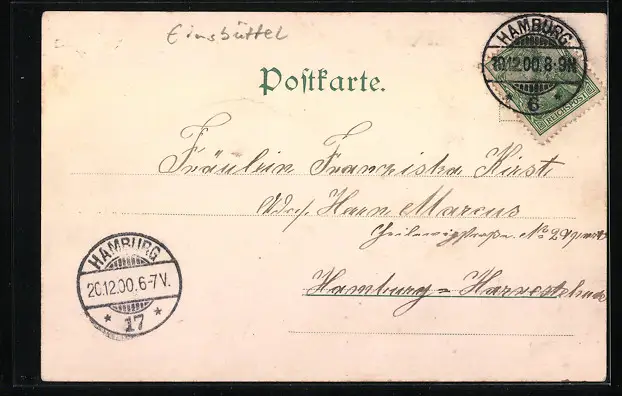 Eimsbüttel
HAMBURG
19.12.00.8-9N
* 6 *
REICHSPOST
Postkarte.
Fräulein Franziska Kirst
Adr. Herrn Marcus
No 29
Hamburg = Harvestehude
HAMBURG
20.12.00.6-7V.
* 17 *